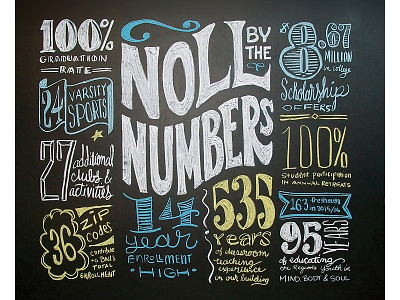 100%
GRADUATION
RATE
24
VARSITY
SPORTS
27
additional
clubs &
activities
36
ZIP
CODES
contribute
to BNL's
TOTAL
ENROLLMENT
NOLL
BY
THE
NUMBERS
14
year
ENROLLMENT
HIGH
535
YEARS
of classroom
teaching
experience
in our building
$8.67
MILLION
in college
Scholarship
OFFERS
100%
Student participation
IN ANNUAL RETREATS
163 freshmen
in 2015/16
95
YEARS
of educating
the Region's Youth in
MIND, BODY & SOUL